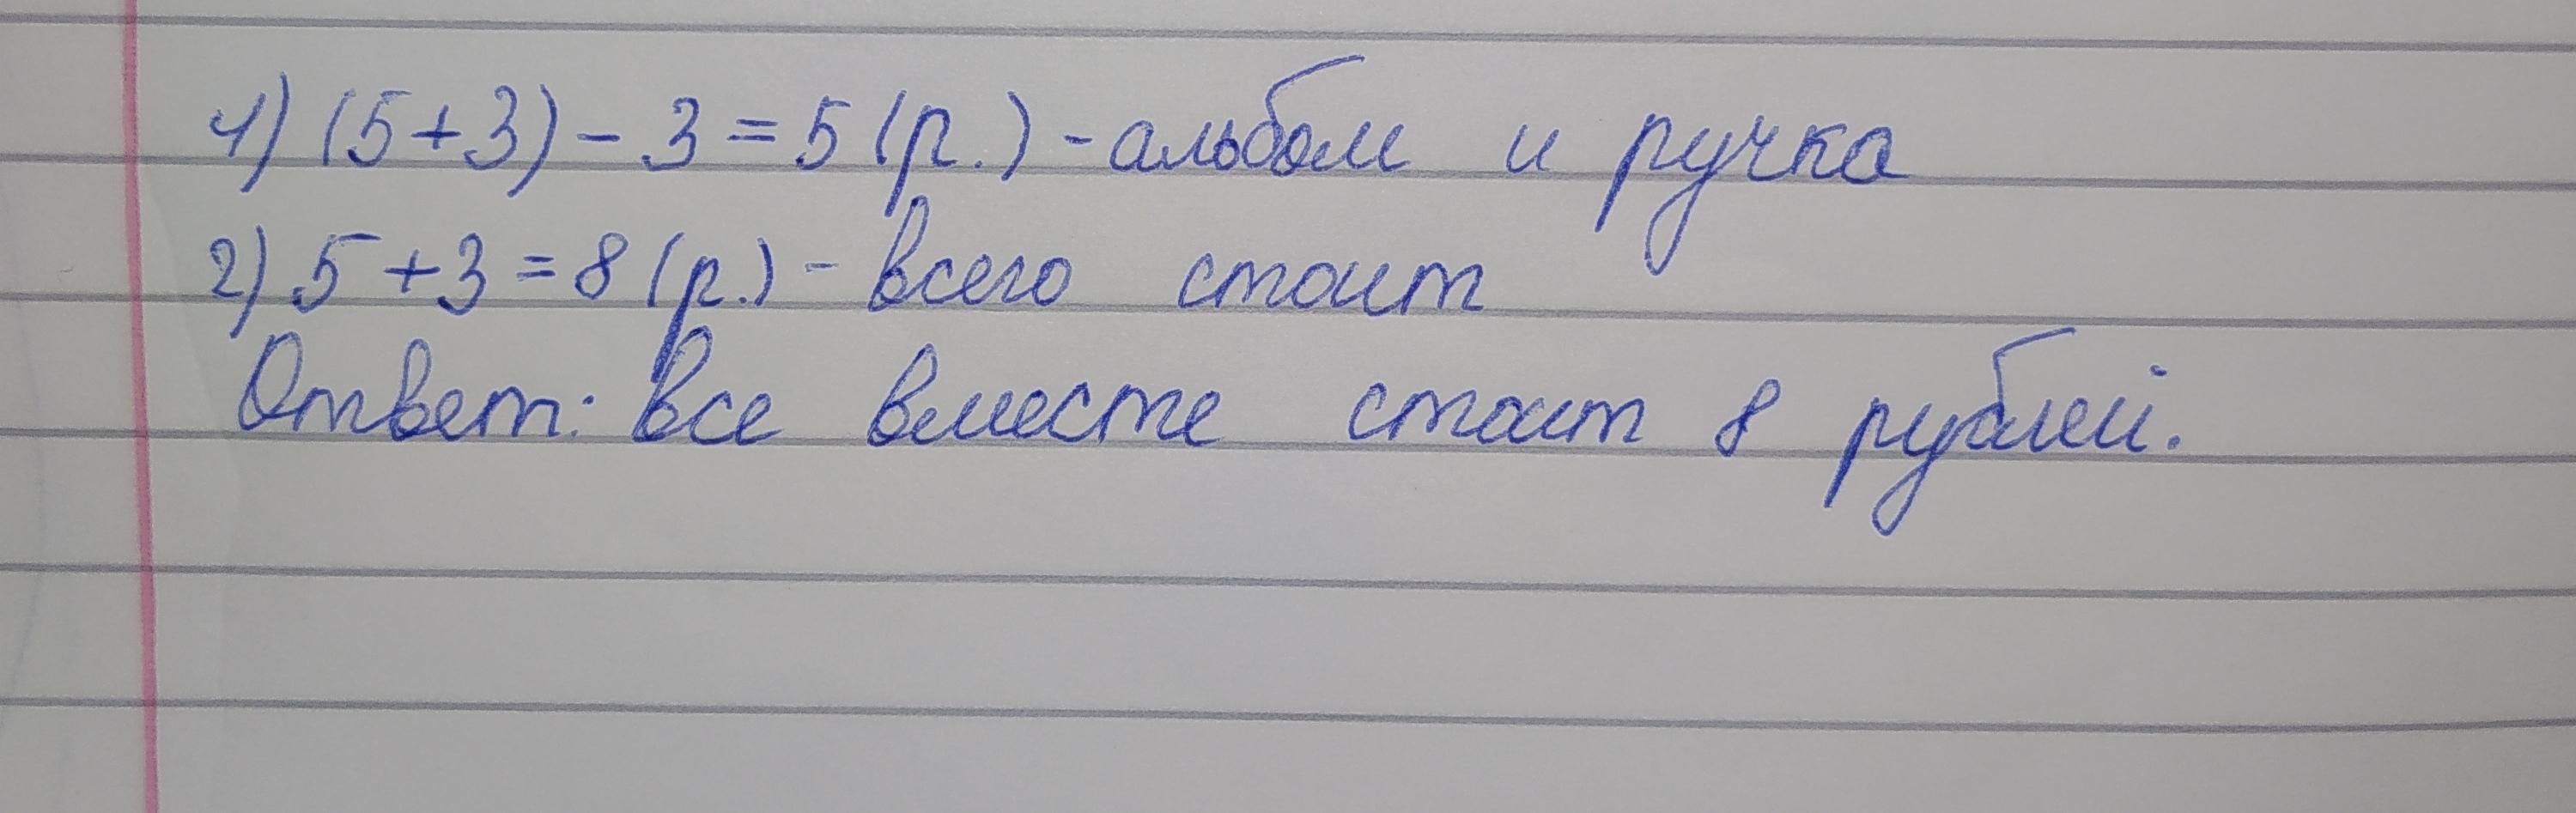 1) (5+3) - 3 = 5 (р.) - альбом и ручка
2) 5 + 3 = 8 (р.) - всего стоит
Ответ: все вместе стоит 8 рублей.